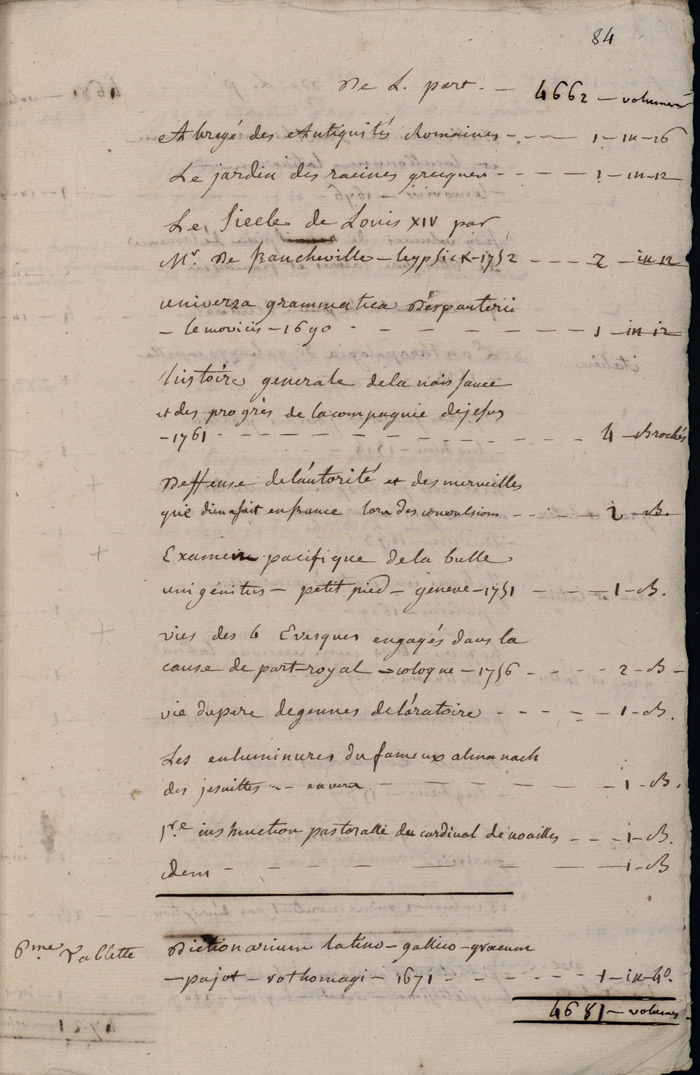 84
De L. part. — 4662 — volumes
Abregé des Antiquités Romaines - - — - 1 - in-16
Le jardin des racines grecques - - - - 1 - in-12
Le siecle de Louis XIV par
Mr. De francheville - leypsick - 1752 - - - - 2 - in 12
universa grammatica Despauterii
- lemovicis - 1690 - - - - - - 1 - in 12
histoire generale de la naissance
et des progrès de la compagnie de jesus
- 1761 - - - - - - - - - - - 4 - Brochés
Deffense de l'autorité et des merveilles
que dieu a fait en france lors des convulsions - - - - - 2 - B -
Examein pacifique de la bulle
unigenitus - petit pied - geneve - 1751 - - - - 1 - B.
vies des 6 Evesques engagés dans la
cause de part-royal - cologne - 1756 - - - - 2 - B -
vie du pere de gennes de l'oratoire - - - - - 1 - B.
Les enluminures du fameux almanach
des jesuittes - - - - - - - - 1 - B.
1re instruction pastoralle du cardinal de noailles - - - 1 - B.
idem - - - - - - - - 1 - B
6me Tablette
Dictionarium latino-gallico-graecum
- pajot - rothomagi - 1671 - - - - - - 1 - in 4o.
4681 - volumes